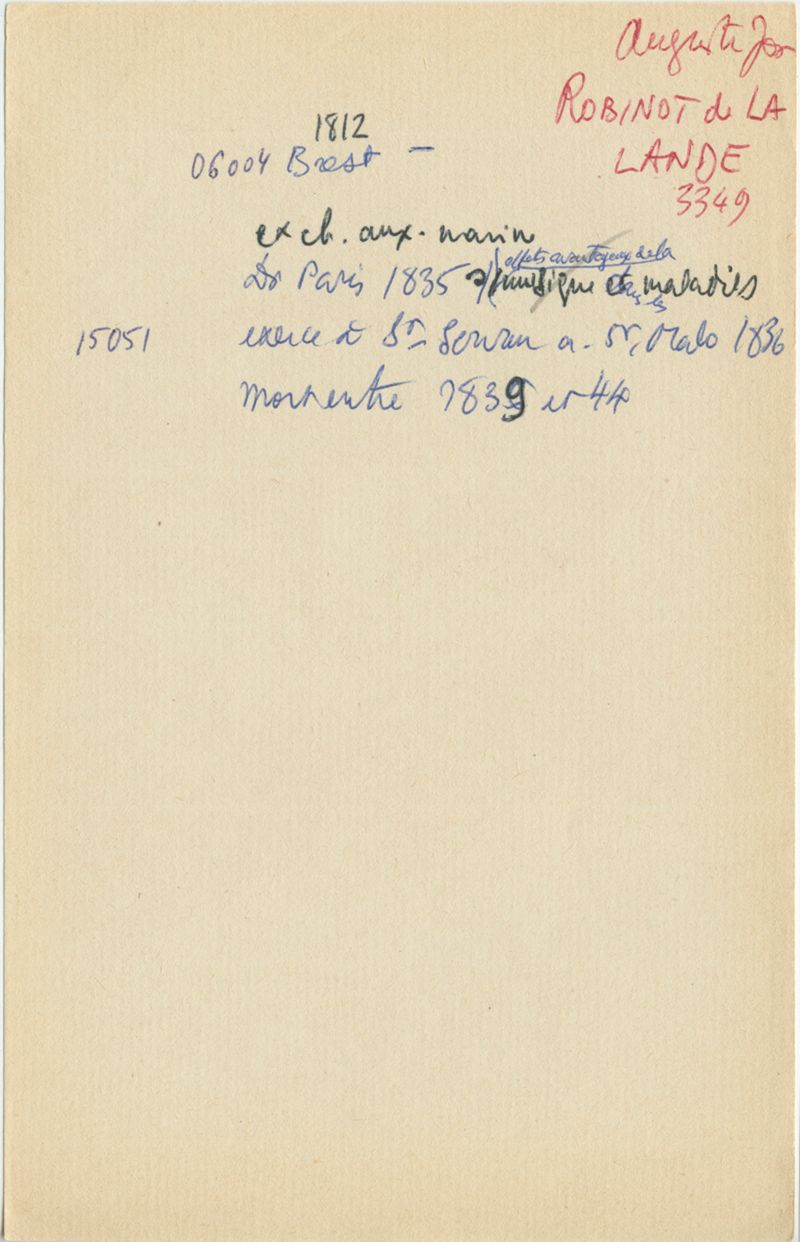 Auguste Jos
ROBINOT de LA
LANDE
3349
1812
06004 Brest –
ex ch. aux. marin
effets avantageux de la
Dr Paris 1835 s/ musique et maladies
dans les
15051 exerce à St Servan a. St Malo 1836
Mort entre 1839 et 44